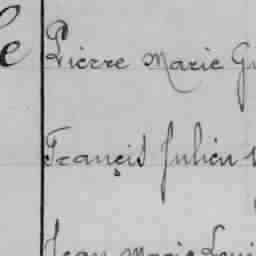 e Pierre Marie G
François Julien
Jean Marie Loui